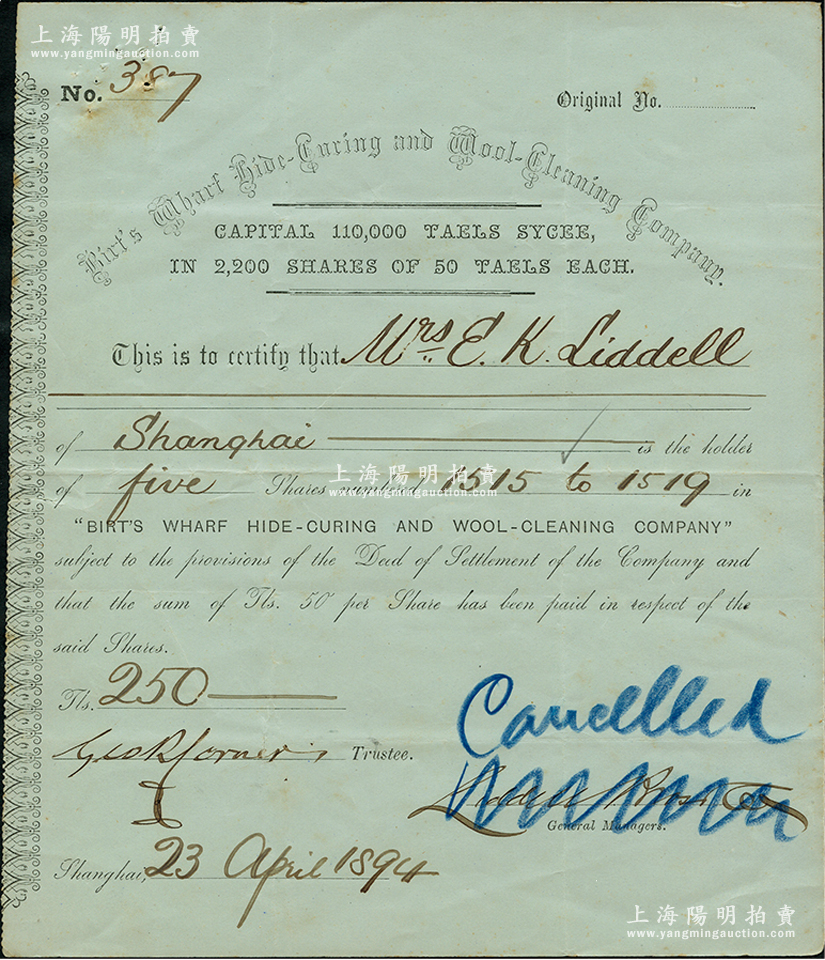 上海陽明拍賣
www.yangmingauction.com
No. 387
Original No.
Birt's Wharf Hide-Curing and Wool-Cleaning Company.
CAPITAL 110,000 TAELS SYCEE,
IN 2,200 SHARES OF 50 TAELS EACH.
This is to certify that Mrs. E. K. Liddell
of Shanghai is the holder
of five Shares numbered 1515 to 1519 in
上海陽明拍賣
www.yangmingauction.com
"BIRT'S WHARF HIDE-CURING AND WOOL-CLEANING COMPANY"
subject to the provisions of the Deed of Settlement of the Company and
that the sum of Tls. 50 per Share has been paid in respect of the
said Shares.
Tls. 250
Cancelled
Trustee.
Liddell Bros. & Co
General Managers.
Shanghai, 23 April 1894
上海陽明拍賣
www.yangmingauction.com